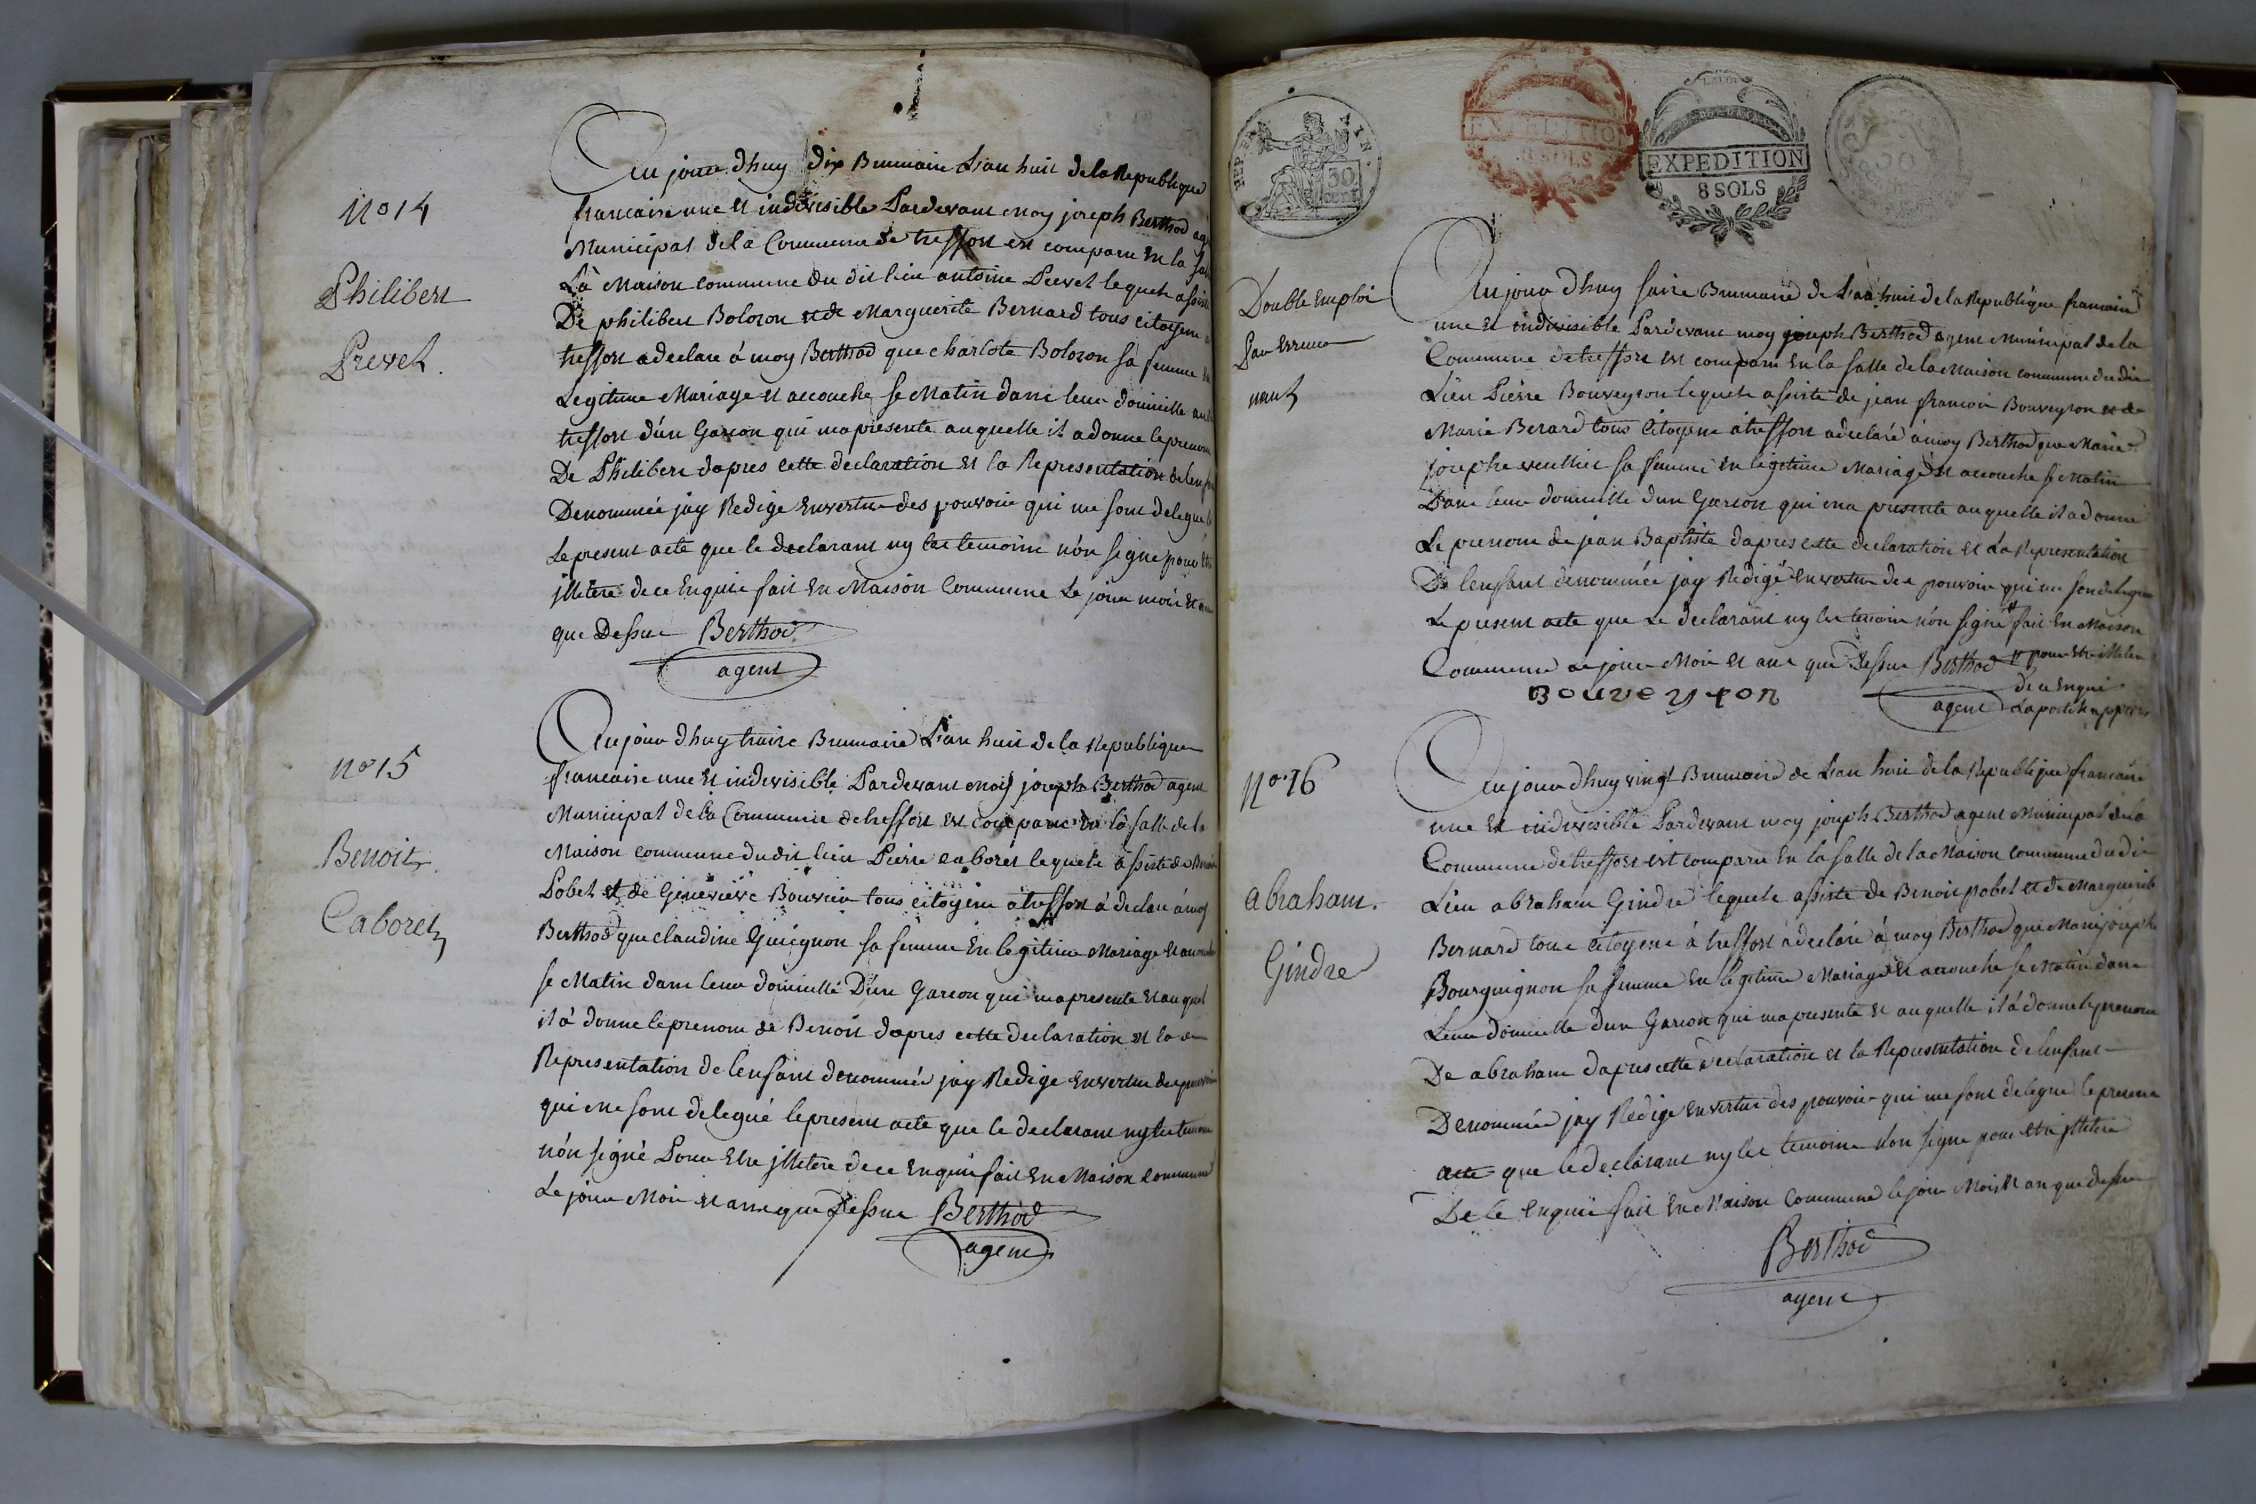 No 14
Philibert
Prevel.
Au jourdhuy dix Brumaire Lan huit de la Republique
francaise une et indivisible Pardevant moy joseph Berthod
Municipal de la Commune de treffort est comparu en la
La Maison commune du dit lieu antoine Prevel lequel
De philibert Bolozon et de Marguerite Bernard tous citoyens
treffort a declare á moy Berthod que charlote Bolozon sa femme
Legitime Mariage et accouche se Matin dans leur domicille
treffort d'un Garcon qui ma presenté auquelle il a donne le prenom
De Philibert dapres cette declaration et la Representation
Denommée jay Redige Envertu des pouvoir qui me sont delegué
Le present acte que le declarant ny les temoins non signe pour
jlletere de ce Enquis fait En Maison Commune Le jour mois et
que Dessus Berthod
agent
no 15
Benoit
Caborel
Aujourdhuy traize Brumaire Lan huit de la Republique
francaise une Et indivisible Pardevant moy joseph Berthod agent
Municipal de la Commune de treffort est comparu En la salle de la
Maison commune du dit lieu Pierre caboret lequel assiste de
Pobel et de Genevieve Bouvier tous citoyens a treffort á declare á moy
Berthod que claudine Guignon sa femme En legitime Mariage
se Matin dans leur domicille Dun Garcon qui ma presente Et auquel
il á donne le prenom de Benoit dapres cette declaration et la
Representation de lenfant denommée jay Redige Envertu des
qui me sont delegué le present acte que le declarant ny les
nón signé Pour Etre jlletere de ce Enquis fait En Maison commune
Le jour Mois et an que Dessus Berthod
agent
REP
30
CENT
EXPEDITION
8 SOLS
EXPEDITION
8 SOLS
Double Emploi
Par Erreur
Aujourdhuy saize Brumaire de Lan huit de la Republique francaise
une Et indivisible Pardevant moy joseph Berthod agent Municipal de la
Commune de treffort est comparu En la salle de la Maison commune du dit
Lieu Pierre Bouveyron lequel assiste de jean francois Bouveyron et de
Marie Berard tous Citoyens á treffort a declaré á moy Berthod que Marie
josephe sa femme En légitime Mariage et accouche se Matin
Dans leur domicille dun Garcon qui ma presente auquelle il a donne
Le prenom de jean Baptiste dapres cette declaration et La Representation
De lenfant denommée jay Redigé Envertu des pouvoir qui me
Le present acte que Le declarant ny les temoins nón signe fait En Maison
Commune ce jour Mois et an que Dessus Berthod pour Etre
de ce Enquis
Bouveyron
agent
No 16
abraham.
Gindre
Aujourdhuy vingt Brumaire de Lan huit de la Republique francaise
une Et indivisible Pardevant moy joseph Berthod agent Municipal de la
Commune de treffort est comparu En la salle de la Maison commune du dit
Lieu abraham Gindre lequel assiste de Benoit pobel et de Marguerite
Bernard tous citoyens á treffort a declaré á moy Berthod que Marie josephe
Bourguignon sa femme En legitime Mariage et accouche se Matin dans
Leur domicille dun Garcon qui ma presenté et auquelle il á donne le prenom
De abraham dapres cette declaration et la Representation de lenfant
Denommée jay Redige Envertu des pouvoir qui me sont delegue le present
acte que le declarant ny les temoins non signe pour Etre jlletere
De Ce Enquis fait En Maison Commune le jour Mois et an que dessus
Berthod
agent